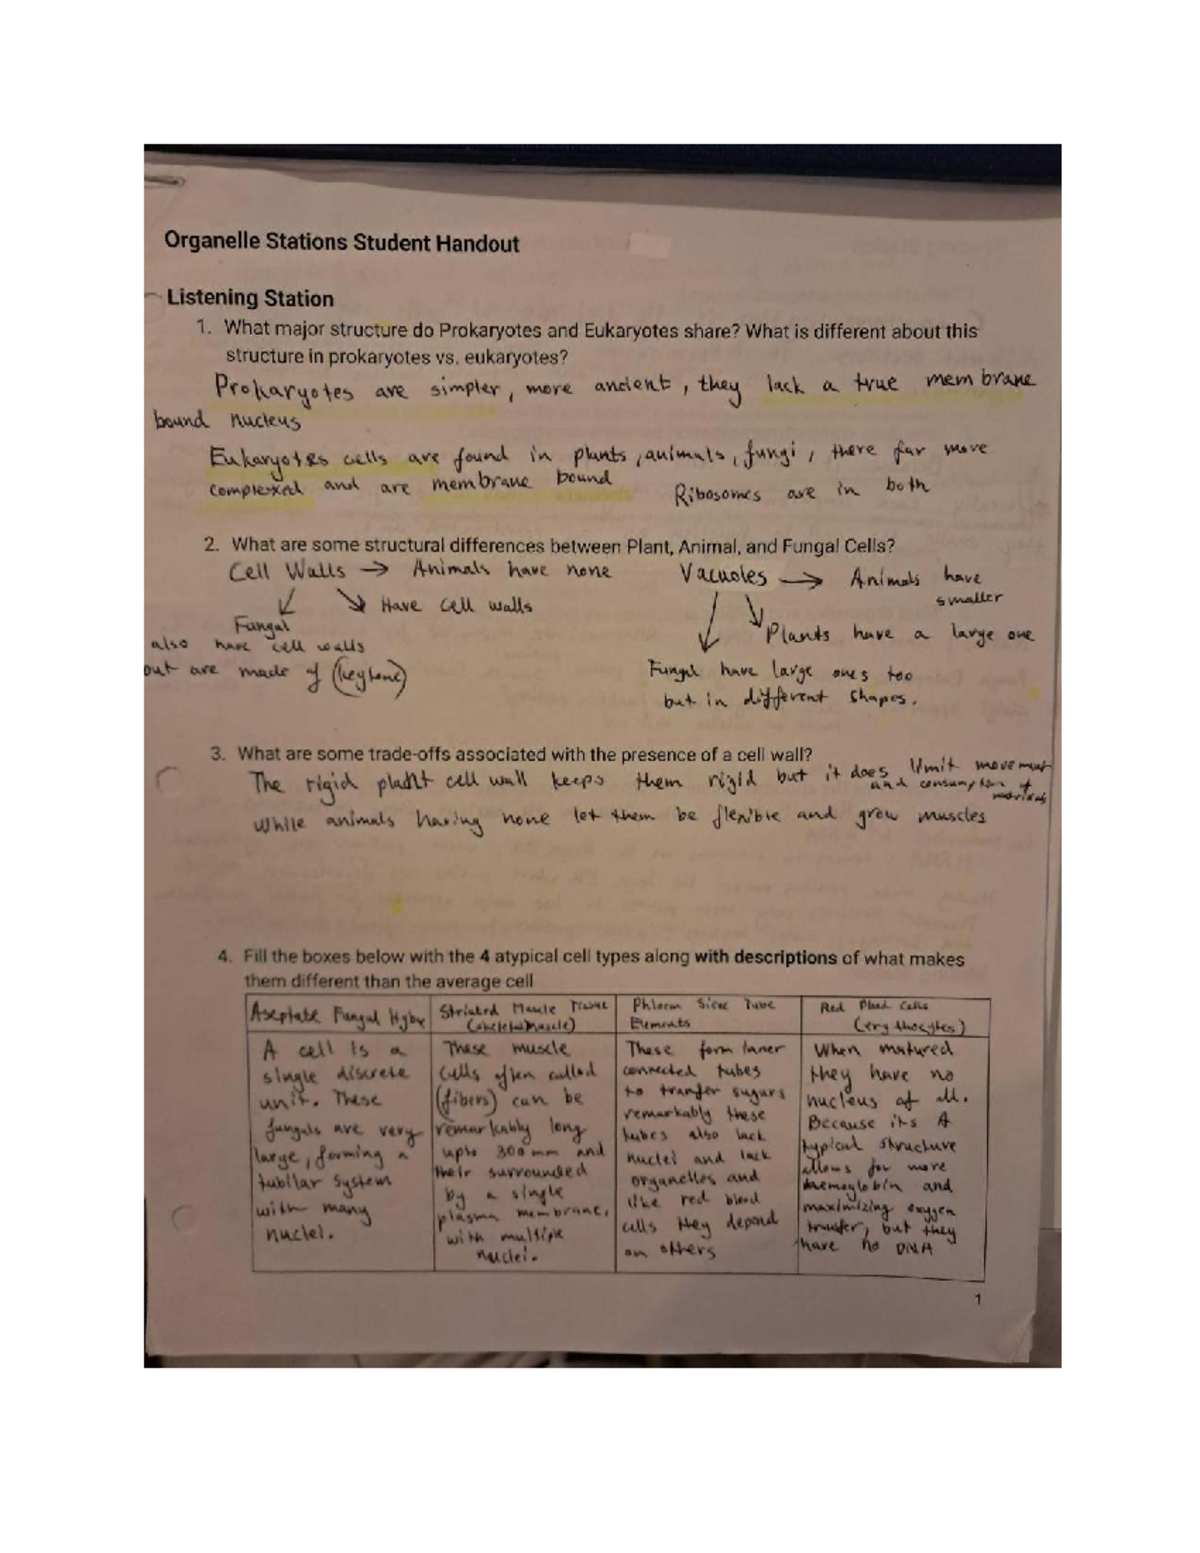 Organelle Stations Student Handout
Listening Station
1. What major structure do Prokaryotes and Eukaryotes share? What is different about this
structure in prokaryotes vs. eukaryotes?
Prokaryotes are simpler, more ancient, they lack a true membrane
bound nucleus
Eukaryotes cells are found in plants, animals, fungi, there far more
complexed and are membrane bound
Ribosomes are in both
2. What are some structural differences between Plant, Animal, and Fungal Cells?
Cell Walls → Animals have none
Have cell walls
Fungal
also have cell walls
but are made of (keytone)
Vacuoles → Animals have
smaller
Plants have a large one
Fungal have large ones too
but in different shapes.
3. What are some trade-offs associated with the presence of a cell wall?
The rigid plant cell wall keeps them rigid but it does limit movement
and consumption of
While animals having none let them be flexible and grow muscles
4. Fill the boxes below with the 4 atypical cell types along with descriptions of what makes
them different than the average cell
Aseptate Fungal
A cell is a
single discrete
unit. These
fungals are very
large, forming a
tubllar system
with many
nuclei.
Striated Muscle Tissue
These muscle
cells often called
(fibers) can be
remarkably long
upto 300mm and
their surrounded
by a single
plasma membrane,
with multiple
nuclei.
Phloem Sieve Tube
Elements
These form inner
connected tubes
to tranfer sugars
remarkably these
tubes also lack
nuclei and lack
organelles and
like red blood
cells they depend
on others
Red Blood Cells
(erythocytes)
When matured
they have no
nucleus at all.
Because its A
typical structure
allows for more
haemoglobin and
maximizing oxygen
transfer, but they
have no DNA
1